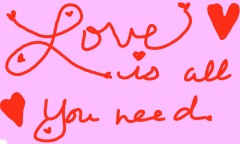 Love
is all
you need.